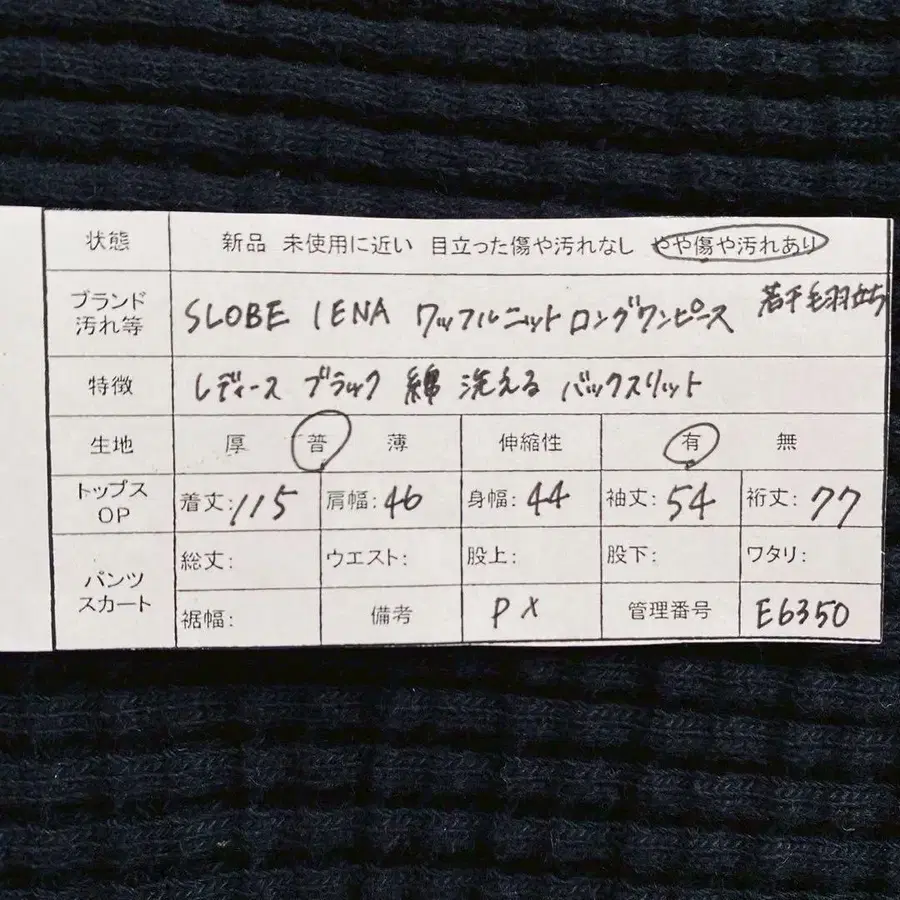 状態 新品 未使用に近い 目立った傷や汚れなし やや傷や汚れあり
ブランド 汚れ等 SLOBE IENA ワッフルニット ロングワンピース 若干毛羽立ち
特徴 レディース ブラック 綿 洗える バックスリット
生地 厚 普 薄 伸縮性 有 無
トップス OP 着丈:115 肩幅:46 身幅:44 袖丈:54 裄丈:77
パンツ スカート 総丈: ウエスト: 股上: 股下: ワタリ:
裾幅: 備考 PX 管理番号 E6350